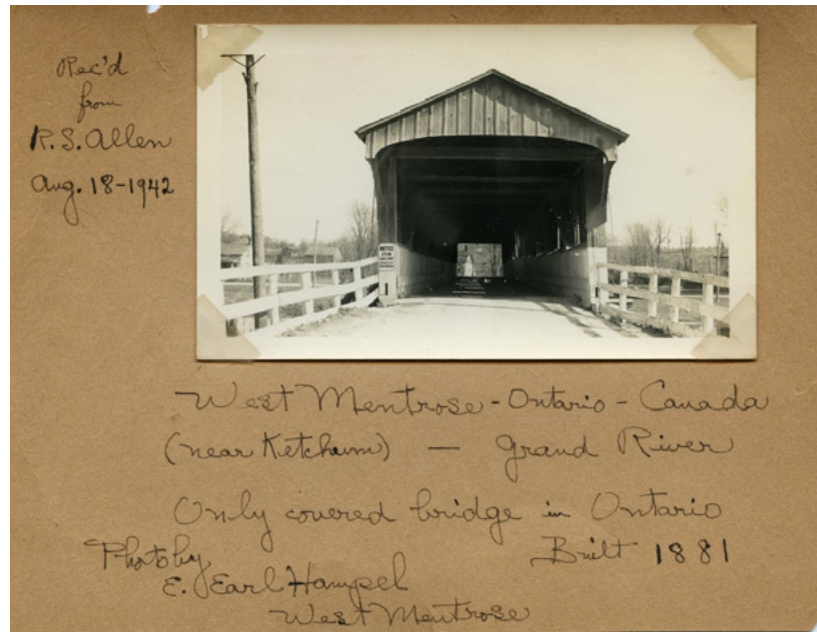 Rec'd
from
R.S. Allen
Aug. 18-1942
NOTICE
West Mentrose - Ontario - Canada
(near Ketchum) — Grand River
Only covered bridge in Ontario
Photo by
Built 1881
E. Earl Hampel
West Mentrose